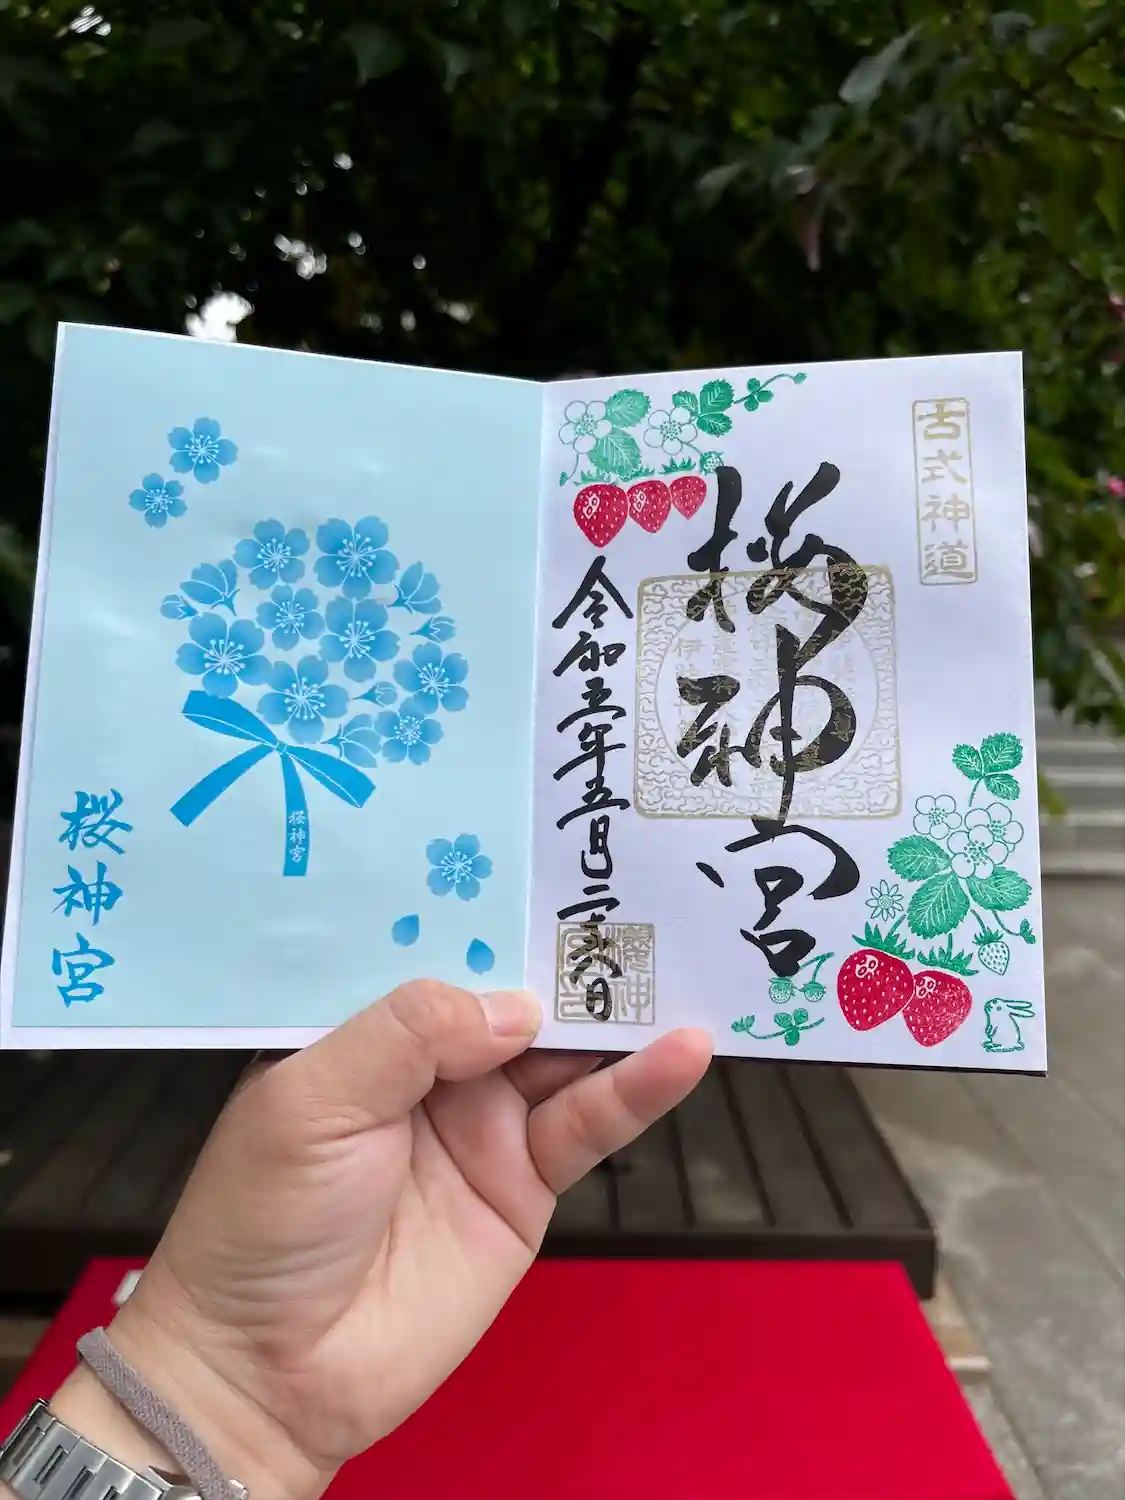 古式神道
桜神宮
令和五年五月二十六日
櫻神
桜神宮
桜神宮